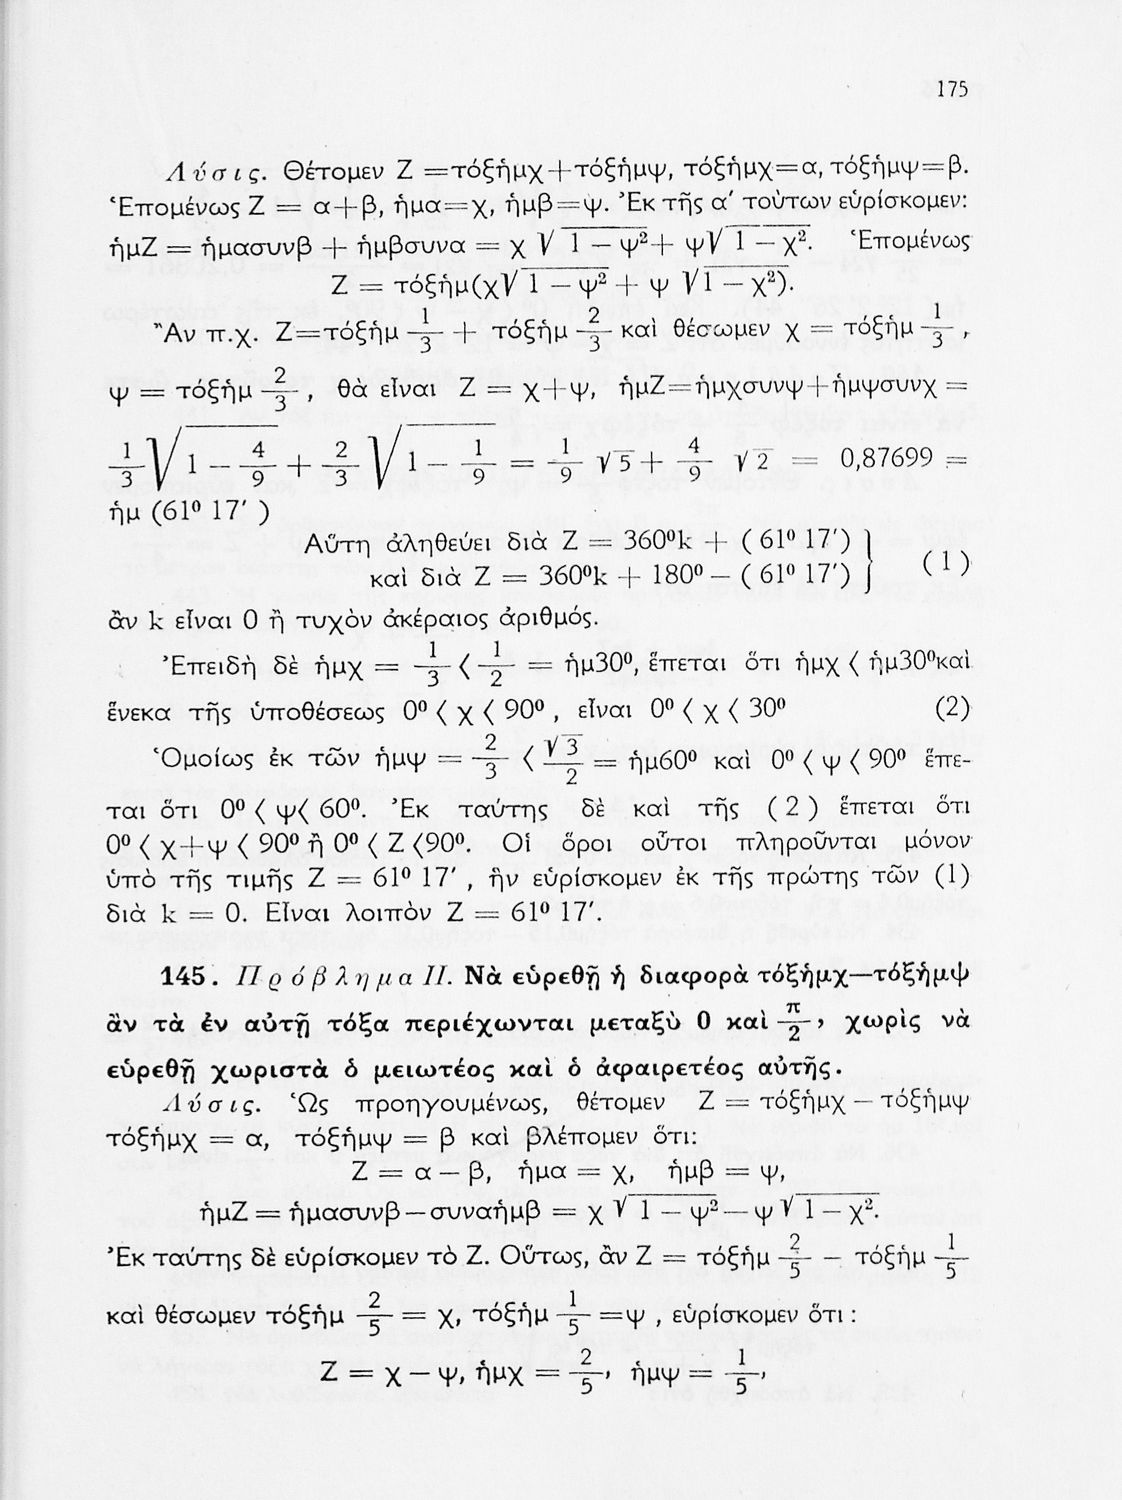 175
Λύσις. Θέτομεν Ζ =τόξήμχ+τόξήμψ, τόξήμχ=α, τόξήμψ=β.
Ἑπομένως Ζ = α+β, ἡμα=χ, ἡμβ=ψ. Ἐκ τῆς α′ τοὺτων εὑρίσκομεν:
ἡμΖ = ἡμασυνβ + ἡμβσυνα = χ √(1 — ψ²) + ψ√(1 — χ²). Ἑπομένως
Ζ = τόξήμ(χ√(1 — ψ²) + ψ √(1 — χ²)).
Ἂν π.χ. Ζ=τόξήμ 1/3 + τόξήμ 2/3 καὶ θέσωμεν χ = τόξήμ 1/3 ,
ψ = τόξήμ 2/3 , θὰ εἶναι Ζ = χ+ψ, ἡμΖ=ἡμχσυνψ+ἡμψσυνχ =
1/3 √(1 — 4/9) + 2/3 √(1 — 1/9) = 1/9 √5 + 4/9 √2 = 0,87699 =
ἡμ (61⁰ 17′ )
Αὕτη ἀληθεύει διὰ Ζ = 360⁰k + ( 61⁰ 17′) }
καὶ διὰ Ζ = 360⁰k + 180⁰ — ( 61⁰ 17′) } ( 1 )
ἂν k εἶναι 0 ἢ τυχὸν ἀκέραιος ἀριθμός.
Ἐπειδὴ δὲ ἡμχ = 1/3 < 1/2 = ἡμ30⁰, ἕπεται ὅτι ἡμχ < ἡμ30⁰καὶ
ἕνεκα τῆς ὑποθέσεως 0⁰ < χ < 90⁰ , εἶναι 0⁰ < χ < 30⁰ (2)
Ὁμοίως ἐκ τῶν ἡμψ = 2/3 < √3/2 = ἡμ60⁰ καὶ 0⁰ < ψ < 90⁰ ἕπε-
ται ὅτι 0⁰ < ψ< 60⁰. Ἐκ ταύτης δὲ καὶ τῆς ( 2 ) ἕπεται ὅτι
0⁰ < χ+ψ < 90⁰ ἢ 0⁰ < Ζ <90⁰. Οἱ ὅροι οὗτοι πληροῦνται μόνον
ὑπὸ τῆς τιμῆς Ζ = 61⁰ 17′ , ἣν εὑρίσκομεν ἐκ τῆς πρώτης τῶν (1)
διὰ k = 0. Εἶναι λοιπὸν Ζ = 61⁰ 17′.
145. Πρόβλημα ΙΙ. Νὰ εὑρεθῇ ἡ διαφορὰ τόξήμχ—τόξήμψ
ἂν τὰ ἐν αὐτῇ τόξα περιέχωνται μεταξὺ 0 καὶ π/2 , χωρὶς νὰ
εὑρεθῇ χωριστὰ ὁ μειωτέος καὶ ὁ ἀφαιρετέος αὐτῆς.
Λύσις. Ὡς προηγουμένως, θέτομεν Ζ = τόξήμχ — τόξήμψ
τόξήμχ = α, τόξήμψ = β καὶ βλέπομεν ὅτι:
Ζ = α — β, ἡμα = χ, ἡμβ = ψ,
ἡμΖ = ἡμασυνβ — συναἡμβ = χ √(1 — ψ²) — ψ √(1 — χ²).
Ἐκ ταύτης δὲ εὑρίσκομεν τὸ Ζ. Οὕτως, ἂν Ζ = τόξήμ 2/5 — τόξήμ 1/5
καὶ θέσωμεν τόξήμ 2/5 = χ, τόξήμ 1/5 =ψ , εὑρίσκομεν ὅτι :
Ζ = χ — ψ, ἡμχ = 2/5, ἡμψ = 1/5,